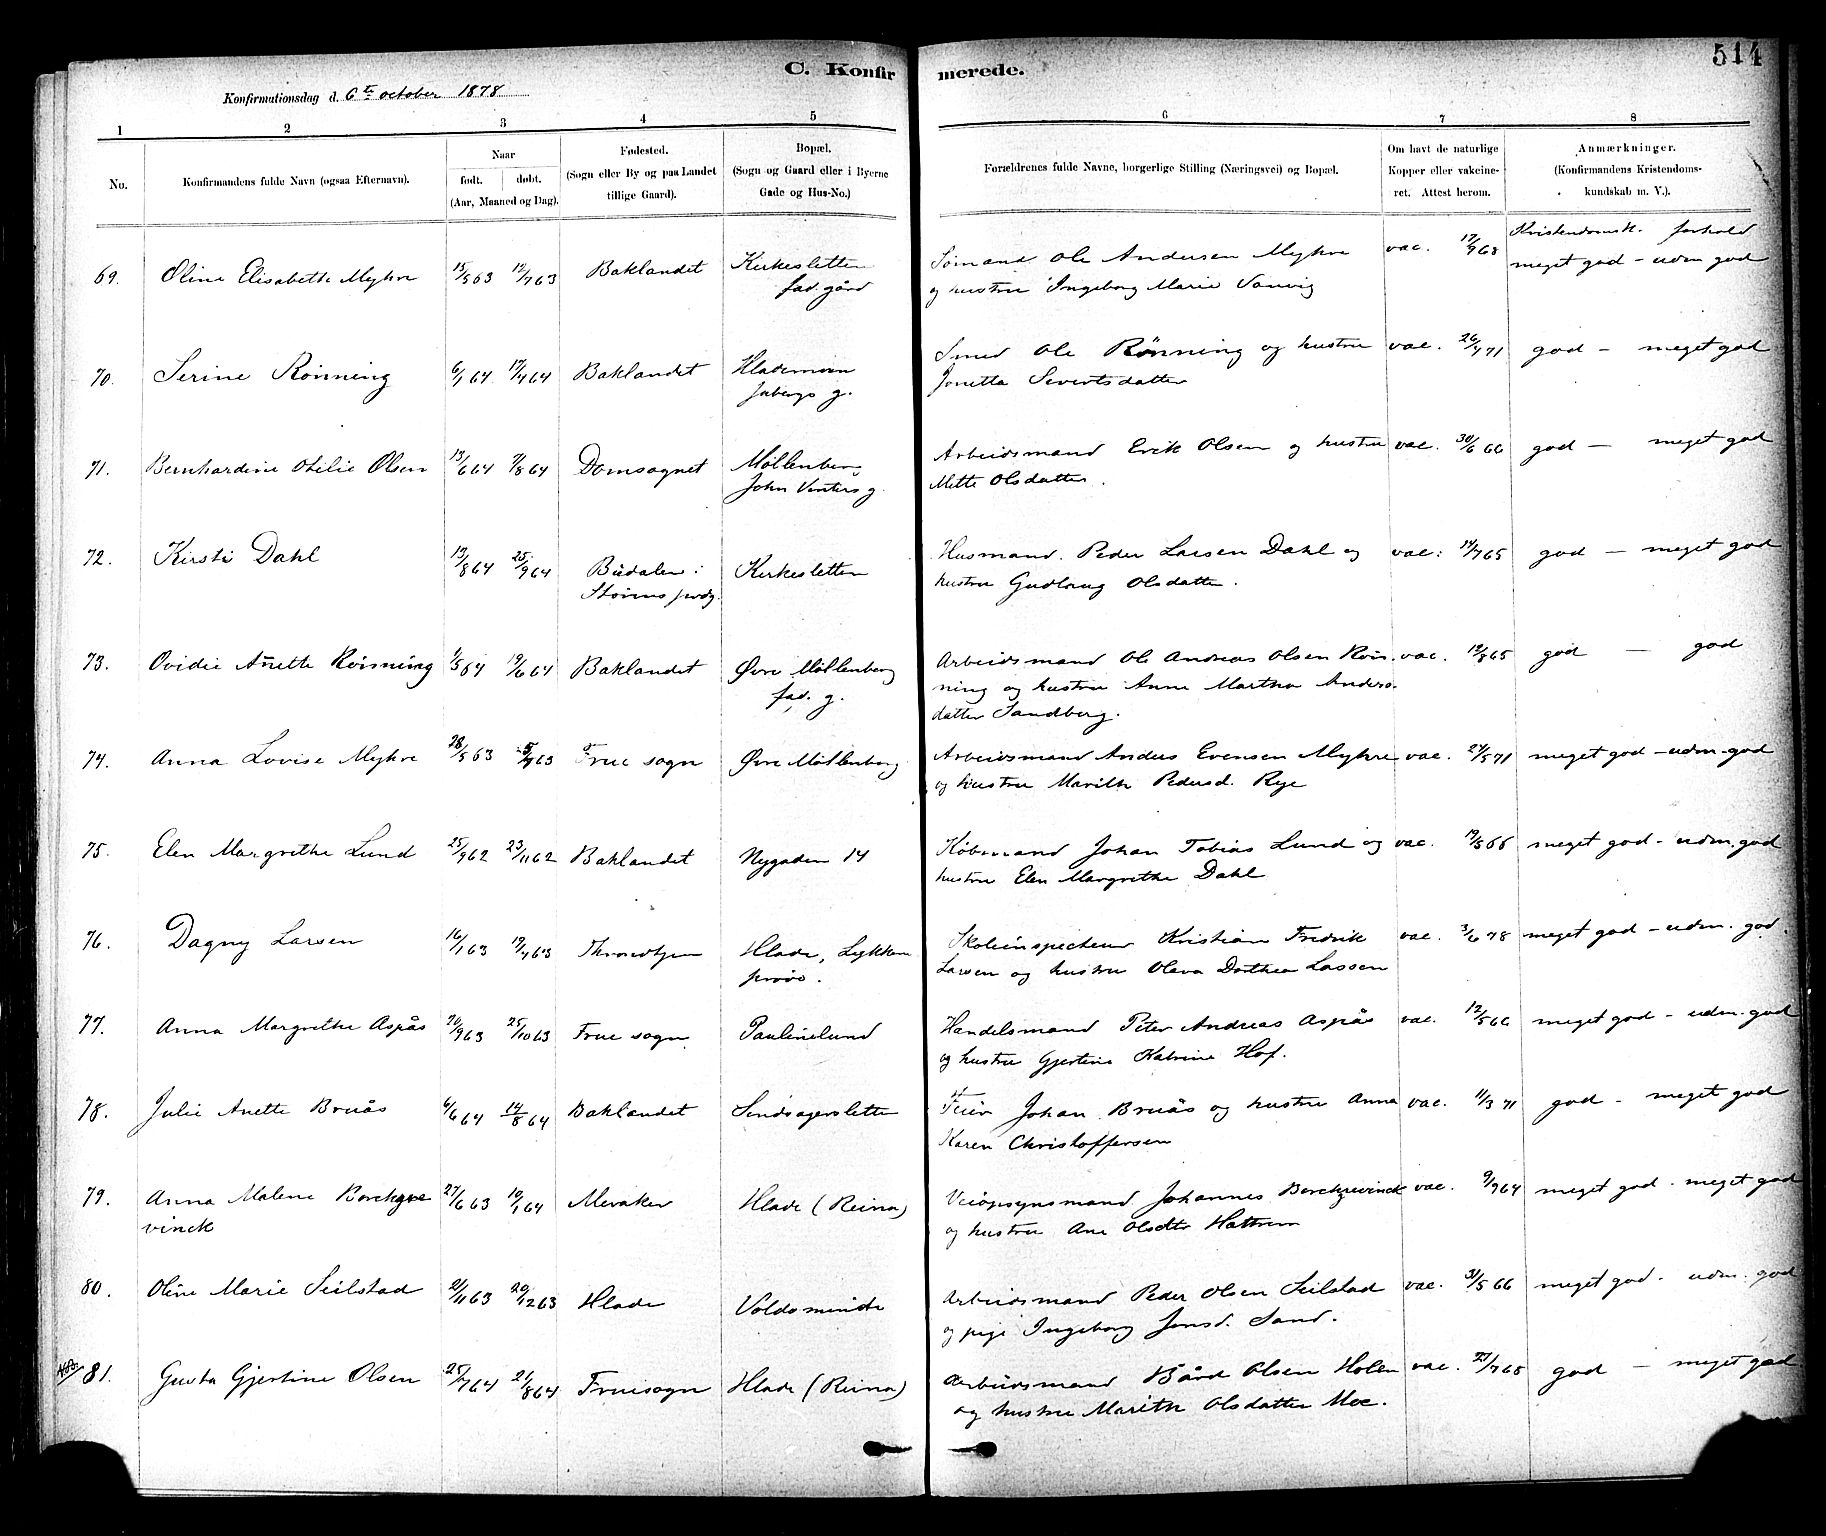 514
C. Konfirmerede.
Konfirmationsdag d. 6te october 1878
1 2 3 4 5 6 7 8
No.
Konfirmandens fulde Navn (ogsaa Efternavn).
Naar
født. døbt.
(Aar, Maaned og Dag).
Fødested.
(Sogn eller By og paa Landet
tillige Gaard).
Bopæl.
(Sogn og Gaard eller i Byerne
Gade og Hus-No.)
Forældrenes fulde Navne, borgerlige Stilling (Næringsvei) og Bopæl.
Om havt de naturlige
Kopper eller vakcine-
ret. Attest herom.
Anmærkninger.
(Konfirmandens Kristendoms-
kundskab m. V.).
Kristendomsk. forhold
69. Oline Elisabeth Myhre 15/5 63 12/7 63 Baklandet Kirkesletten Sømand Ole Andersen Myhre vac. 17/9 68 meget god - udm god
fad. gård og hustru Ingeborg Marie
70. Serine Rönning 6/1 64 17/4 64 Baklandet Hlademoen Smed Ole Rönning og hustru vac. 26/4 71 god - meget god
g. Jonetta Sivertsdatter
71. Bernhardine Otelie Olsen 13/6 64 7/8 64 Domsognet Møllenberg Arbeidsmand Erik Olsen og hustru vac. 30/6 66 god - meget god
John Vinters g. Mette Olsdatter.
72. Kirsti Dahl 19/8 64 25/9 64 Budalen i Kirkesletten Husmand Peder Larsen Dahl og vac: 14/7 65 god - meget god
Størens prdg. hustru Gudlaug Olsdatter.
73. Ovidie Anette Rönning 1/5 64 19/6 64 Baklandet Øvre Möllenberg Arbeidsmand Ole Andreas Olsen Rön- vac. 12/8 65 god - god
fad. g. ning og hustru Anne Martha Anders-
datter Sandberg.
74. Anna Lovise Myhre 28/5 63 63 Frue sogn Øvre Möllenberg Arbeidsmand Anders Evensen Myhre vac. 27/5 71 meget god - udm. god
og hustru Marith Pedersd. Rye
75. Elen Margrethe Lund 25/9 62 23/11 62 Baklandet Nygaden 14 Købmand Johan Tobias Lund og vac. 19/5 66 meget god - udm. god
hustru Elen Margrethe Dahl
76. Dagny Larsen 16/1 63 19/4 63 Throndhjem Hlade, Lykkens Skoleinspecteur Kristian Fredrik vac. 3/6 78 meget god - udm. god.
prøve. Larsen og hustru Oleva Dorthea Lassen
77. Anna Margrethe Aspås 20/9 63 25/10 63 Frue sogn Paulinelund Handelsmand Peter Andreas Aspås vac. 12/5 66 meget god - udm. god
og hustru Gjertine Katrine Hof.
78. Julie Anette Bruås 6/6 64 14/8 64 Baklandet Feier Johan Bruås og hustru Anna vac. 11/3 71 god - meget god
Karen Christoffersen
79. Anna Malene Borchgre 27/6 63 10/1 64 Meraker Hlade (Reina) Veiopsynsmand Johannes Borchgrevinck vac. 9/9 64 meget god - meget god
vinck og hustru Ane Olsdtr
80. Oline Marie Seilstad 2/11 63 20/12 63 Hlade Voldsminde Arbeidsmand Peder Olsen Seilstad vac. 31/5 66 meget god - udm. god
og pige Ingeborg Jonsd. Sand.
81. Gusta Gjertine Olsen 25/7 64 21/8 64 Fruesogn Hlade (Reina) Arbeidsmand Bård Olsen Holen vac. 27/7 65 god - meget god
og hustru Marith Olsdatter Moe.